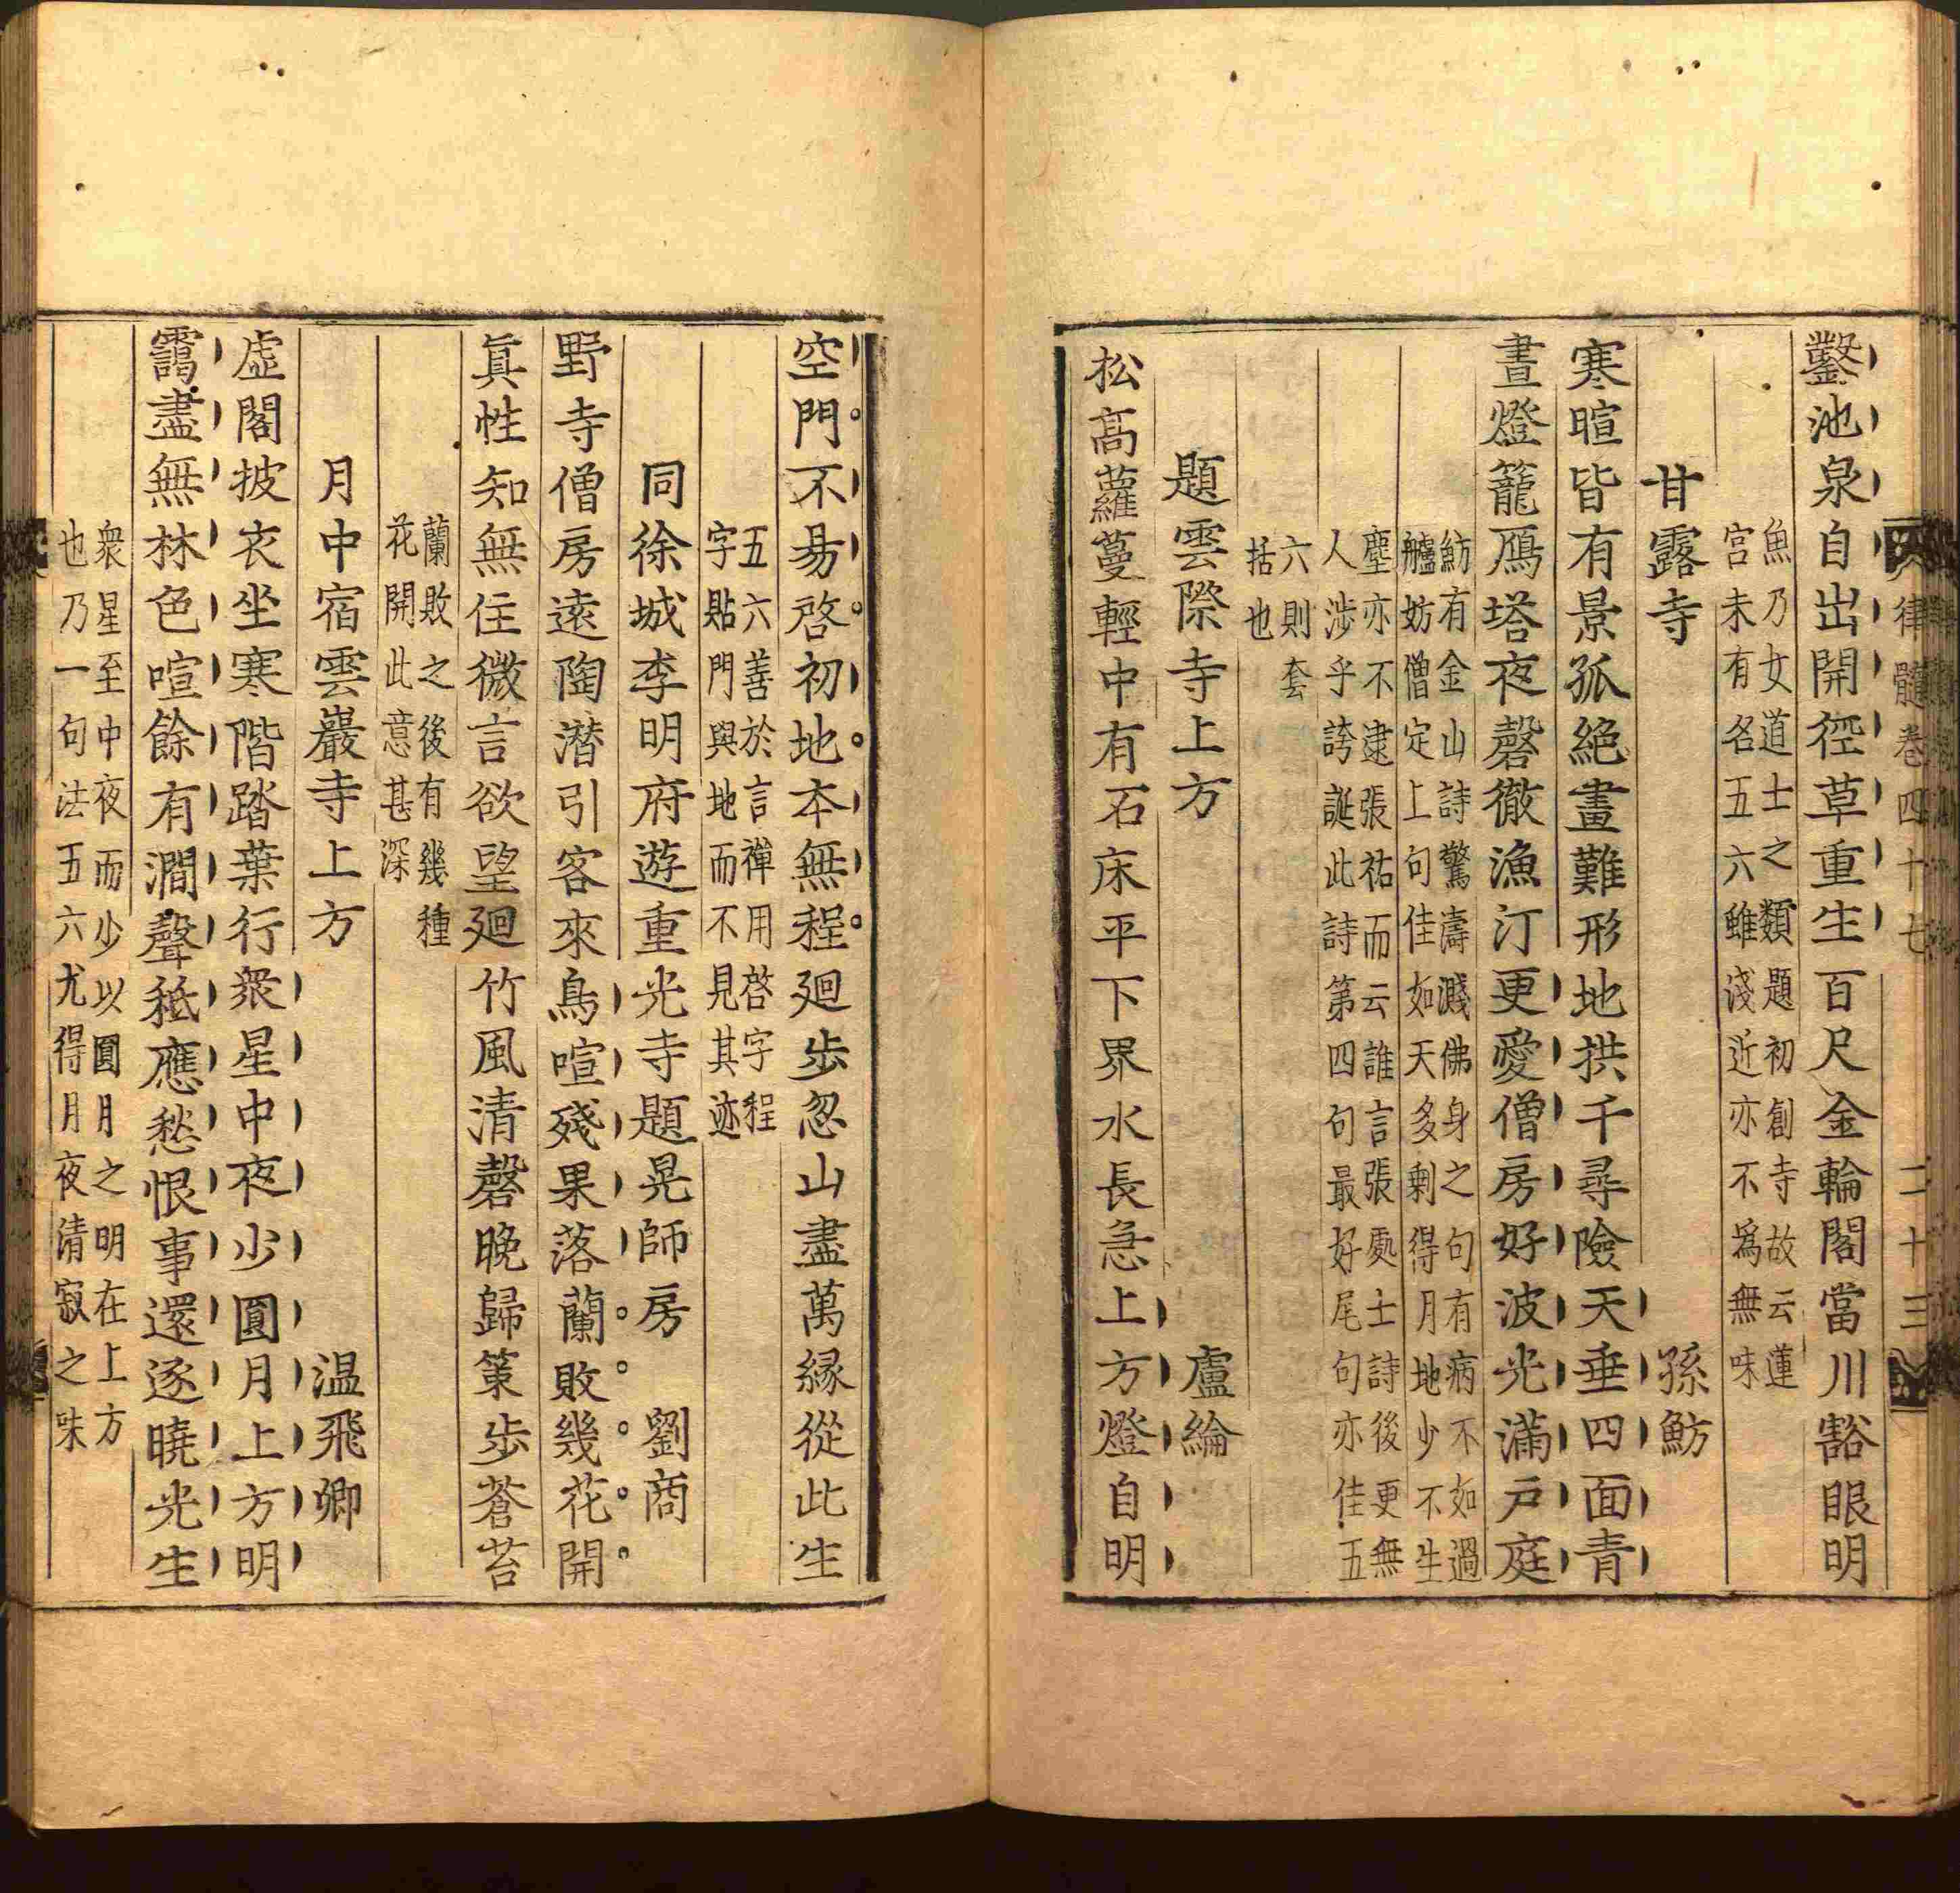 律髓卷四十七 二十三
鑿池泉自出開徑草重生百尺金輪閣當川豁眼明
魚乃女道士之類題初創寺故云蓮
宮未有名五六雖淺近亦不爲無味
甘露寺 孫魴
寒暄皆有景孤絶畫難形地拱千尋險天垂四面青
晝燈籠鴈塔夜磬徹漁汀更愛僧房好波光滿戸庭
魴有金山詩驚濤濺佛身之句有病不如過
艫妨僧定上句佳如天多剰得月地少不生
塵亦不逮張祐而云誰言張處士詩後更無
人渉乎誇誕此詩第四句最好尾句亦佳五
六則套
括也
題雲際寺上方 盧綸
松髙蘿蔓輕中有石床平下界水長急上方燈自明
空門不昜啓初地本無程廻歩忽山盡萬縁從此生
五六善於言禪用啓字程
字貼門與地而不見其迹
同徐城李明府遊重光寺題晃師房 劉商
野寺僧房遠陶潜引客來鳥喧殘果落蘭敗幾花開
眞性知無住微言欲望廻竹風清磬晚歸策歩蒼苔
蘭敗之後有幾種
花開此意甚深
月中宿雲巖寺上方 温飛卿
虚閣披衣坐寒階踏葉行衆星中夜少圓月上方明
靄盡無林色喧餘有澗聲秖應愁恨事還逐曉光生
衆星至中夜而少以圓月之明在上方
也乃一句法五六尤得月夜清寂之味